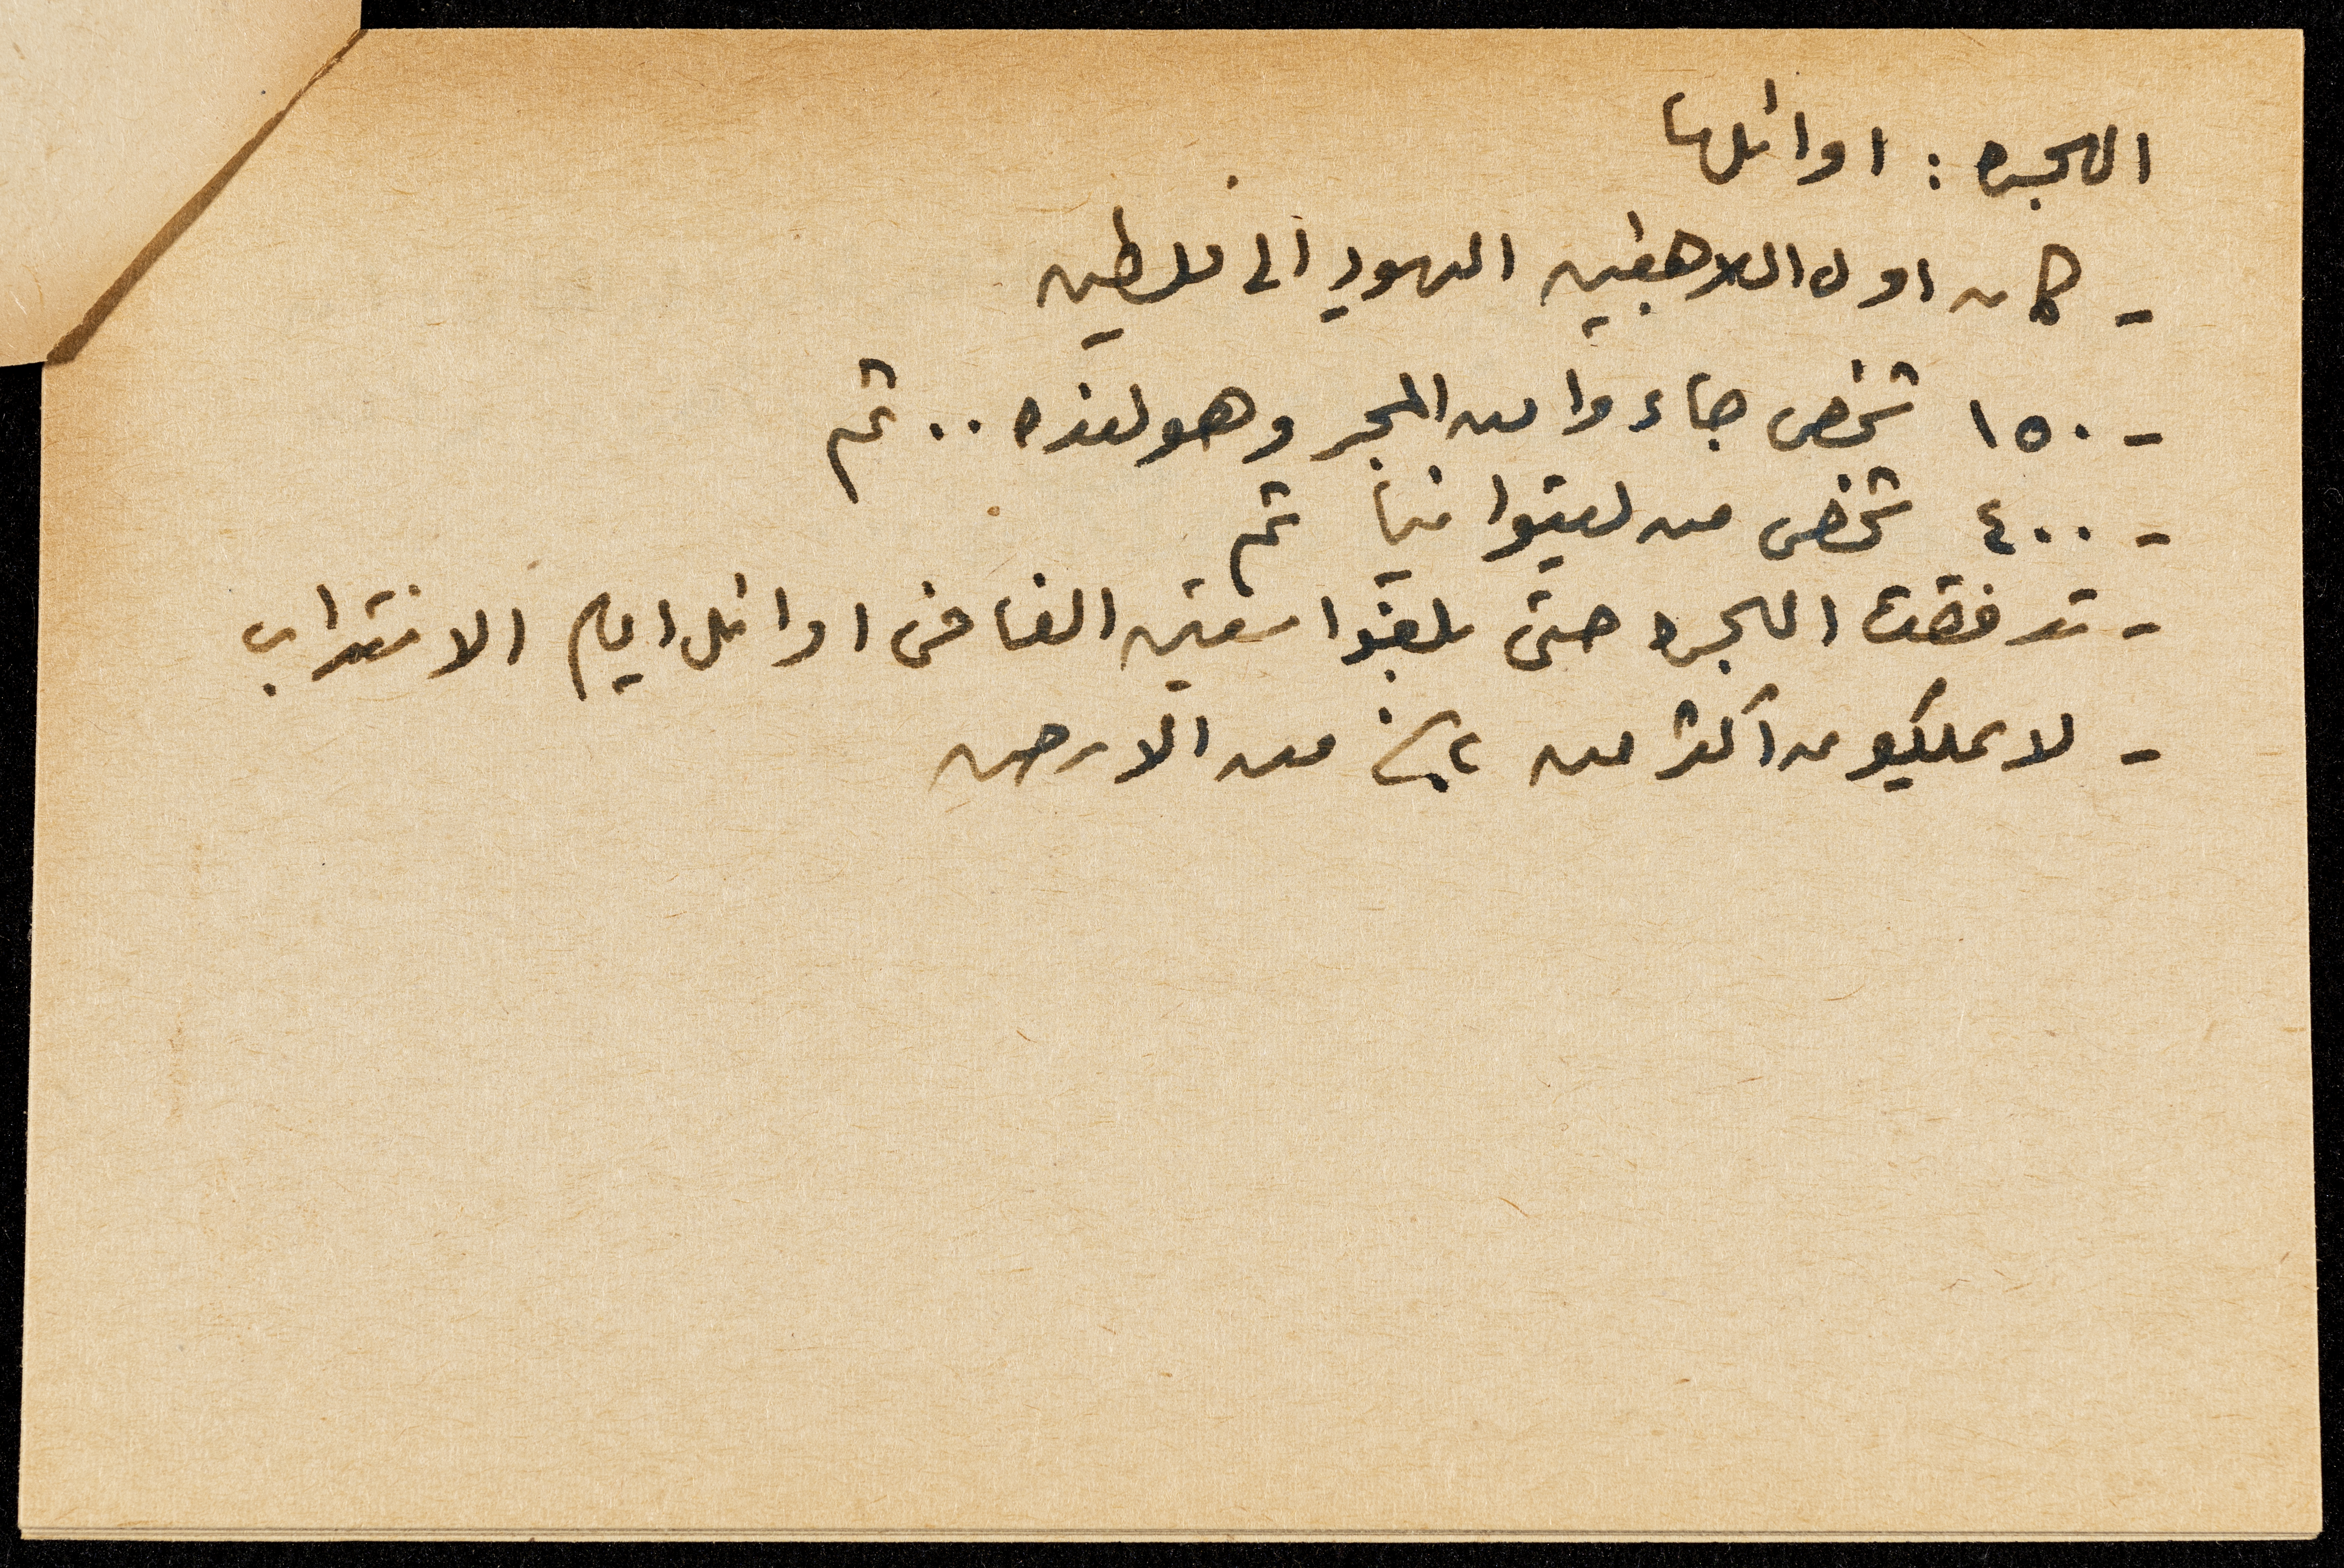 الهجره : اوائلها
- كان اول اللاجئين اليهود الى فلسطين
- ١٥٠ شخص جاءوا من المجر وهولنده .. ثم
- ٤٠٠ شخص من ليتوانيا ثم
- تدفقت الهجره حتى بلغوا ستين الفا في اوائل ايام الانتداب
- لا يملكون اكثر من ٢٪ من الارض